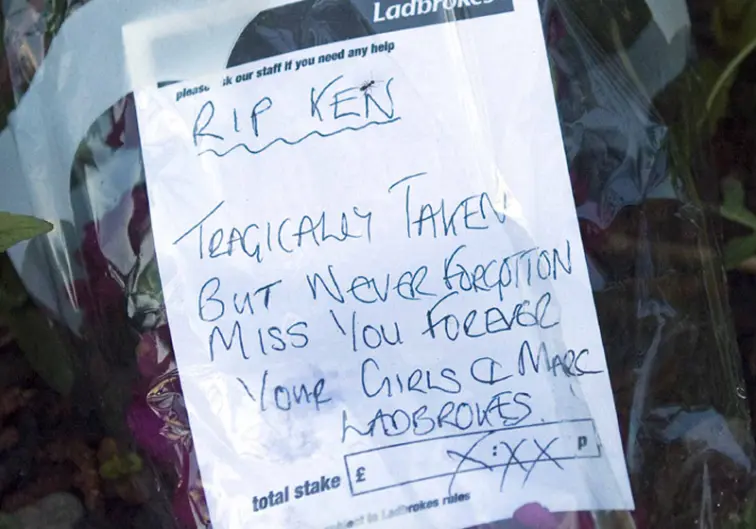 Ladbrokes
please ask our staff if you need any help
RIP KEN
TRAGICALLY TAKEN
BUT NEVER FORGOTTON
MISS YOU FOREVER
YOUR GIRLS & MARC
LADBROKES.
total stake £ X:XX p
to Ladbrokes rules